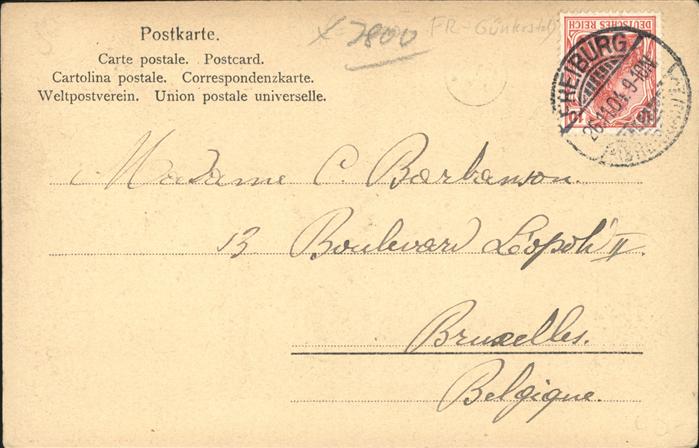 Postkarte.
Carte postale. Postcard.
Cartolina postale. Correspondenzkarte.
Weltpostverein. Union postale universelle.
7800
FR-Günterstal
DEUTSCHES REICH
10
FREIBURG
26.11.04. 9-10N.
Madame C. Barbanson.
13 Boulevard Léopold II
Bruxelles.
Belgique.